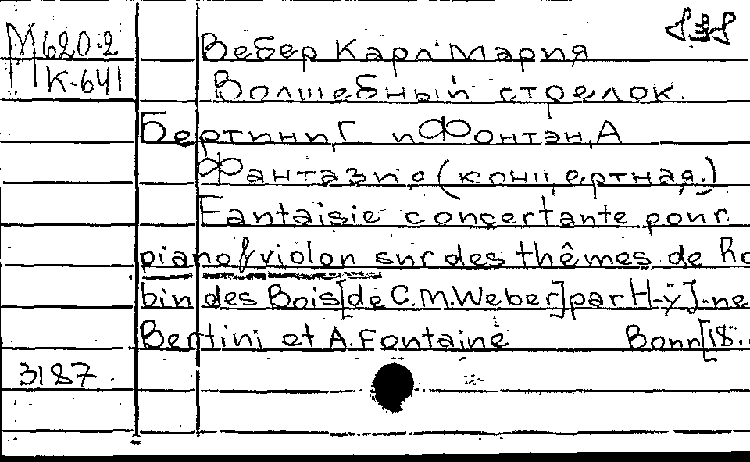 М620.2
К-641
Вебер Карл Мария
Волшебный стрелок.
Бертини, Г и Фонтан, А
Фантазие (концертная.)
Fantaisie concertante pour
piano & violon sur des thêmes de Ro
bin des Bois [de C.M.Weber] par H-y J-ne
Bertini et A.Fontaine Bonn [18.
3187